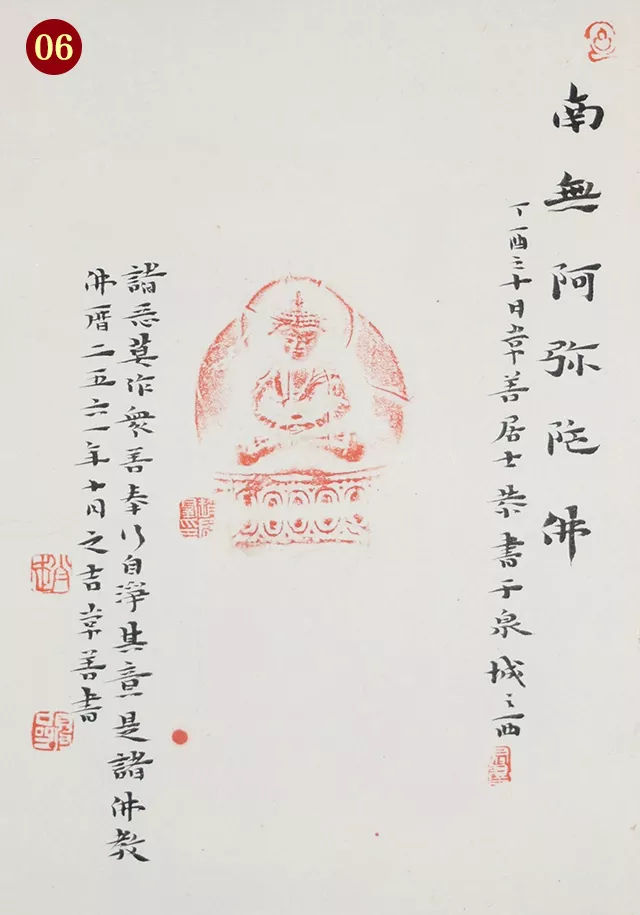 06
南無阿弥陀佛
丁酉三十日常善居士恭書于泉城之西
諸恶莫作衆善奉行自淨其意是諸佛教
佛曆二五六一年十月之吉常善書